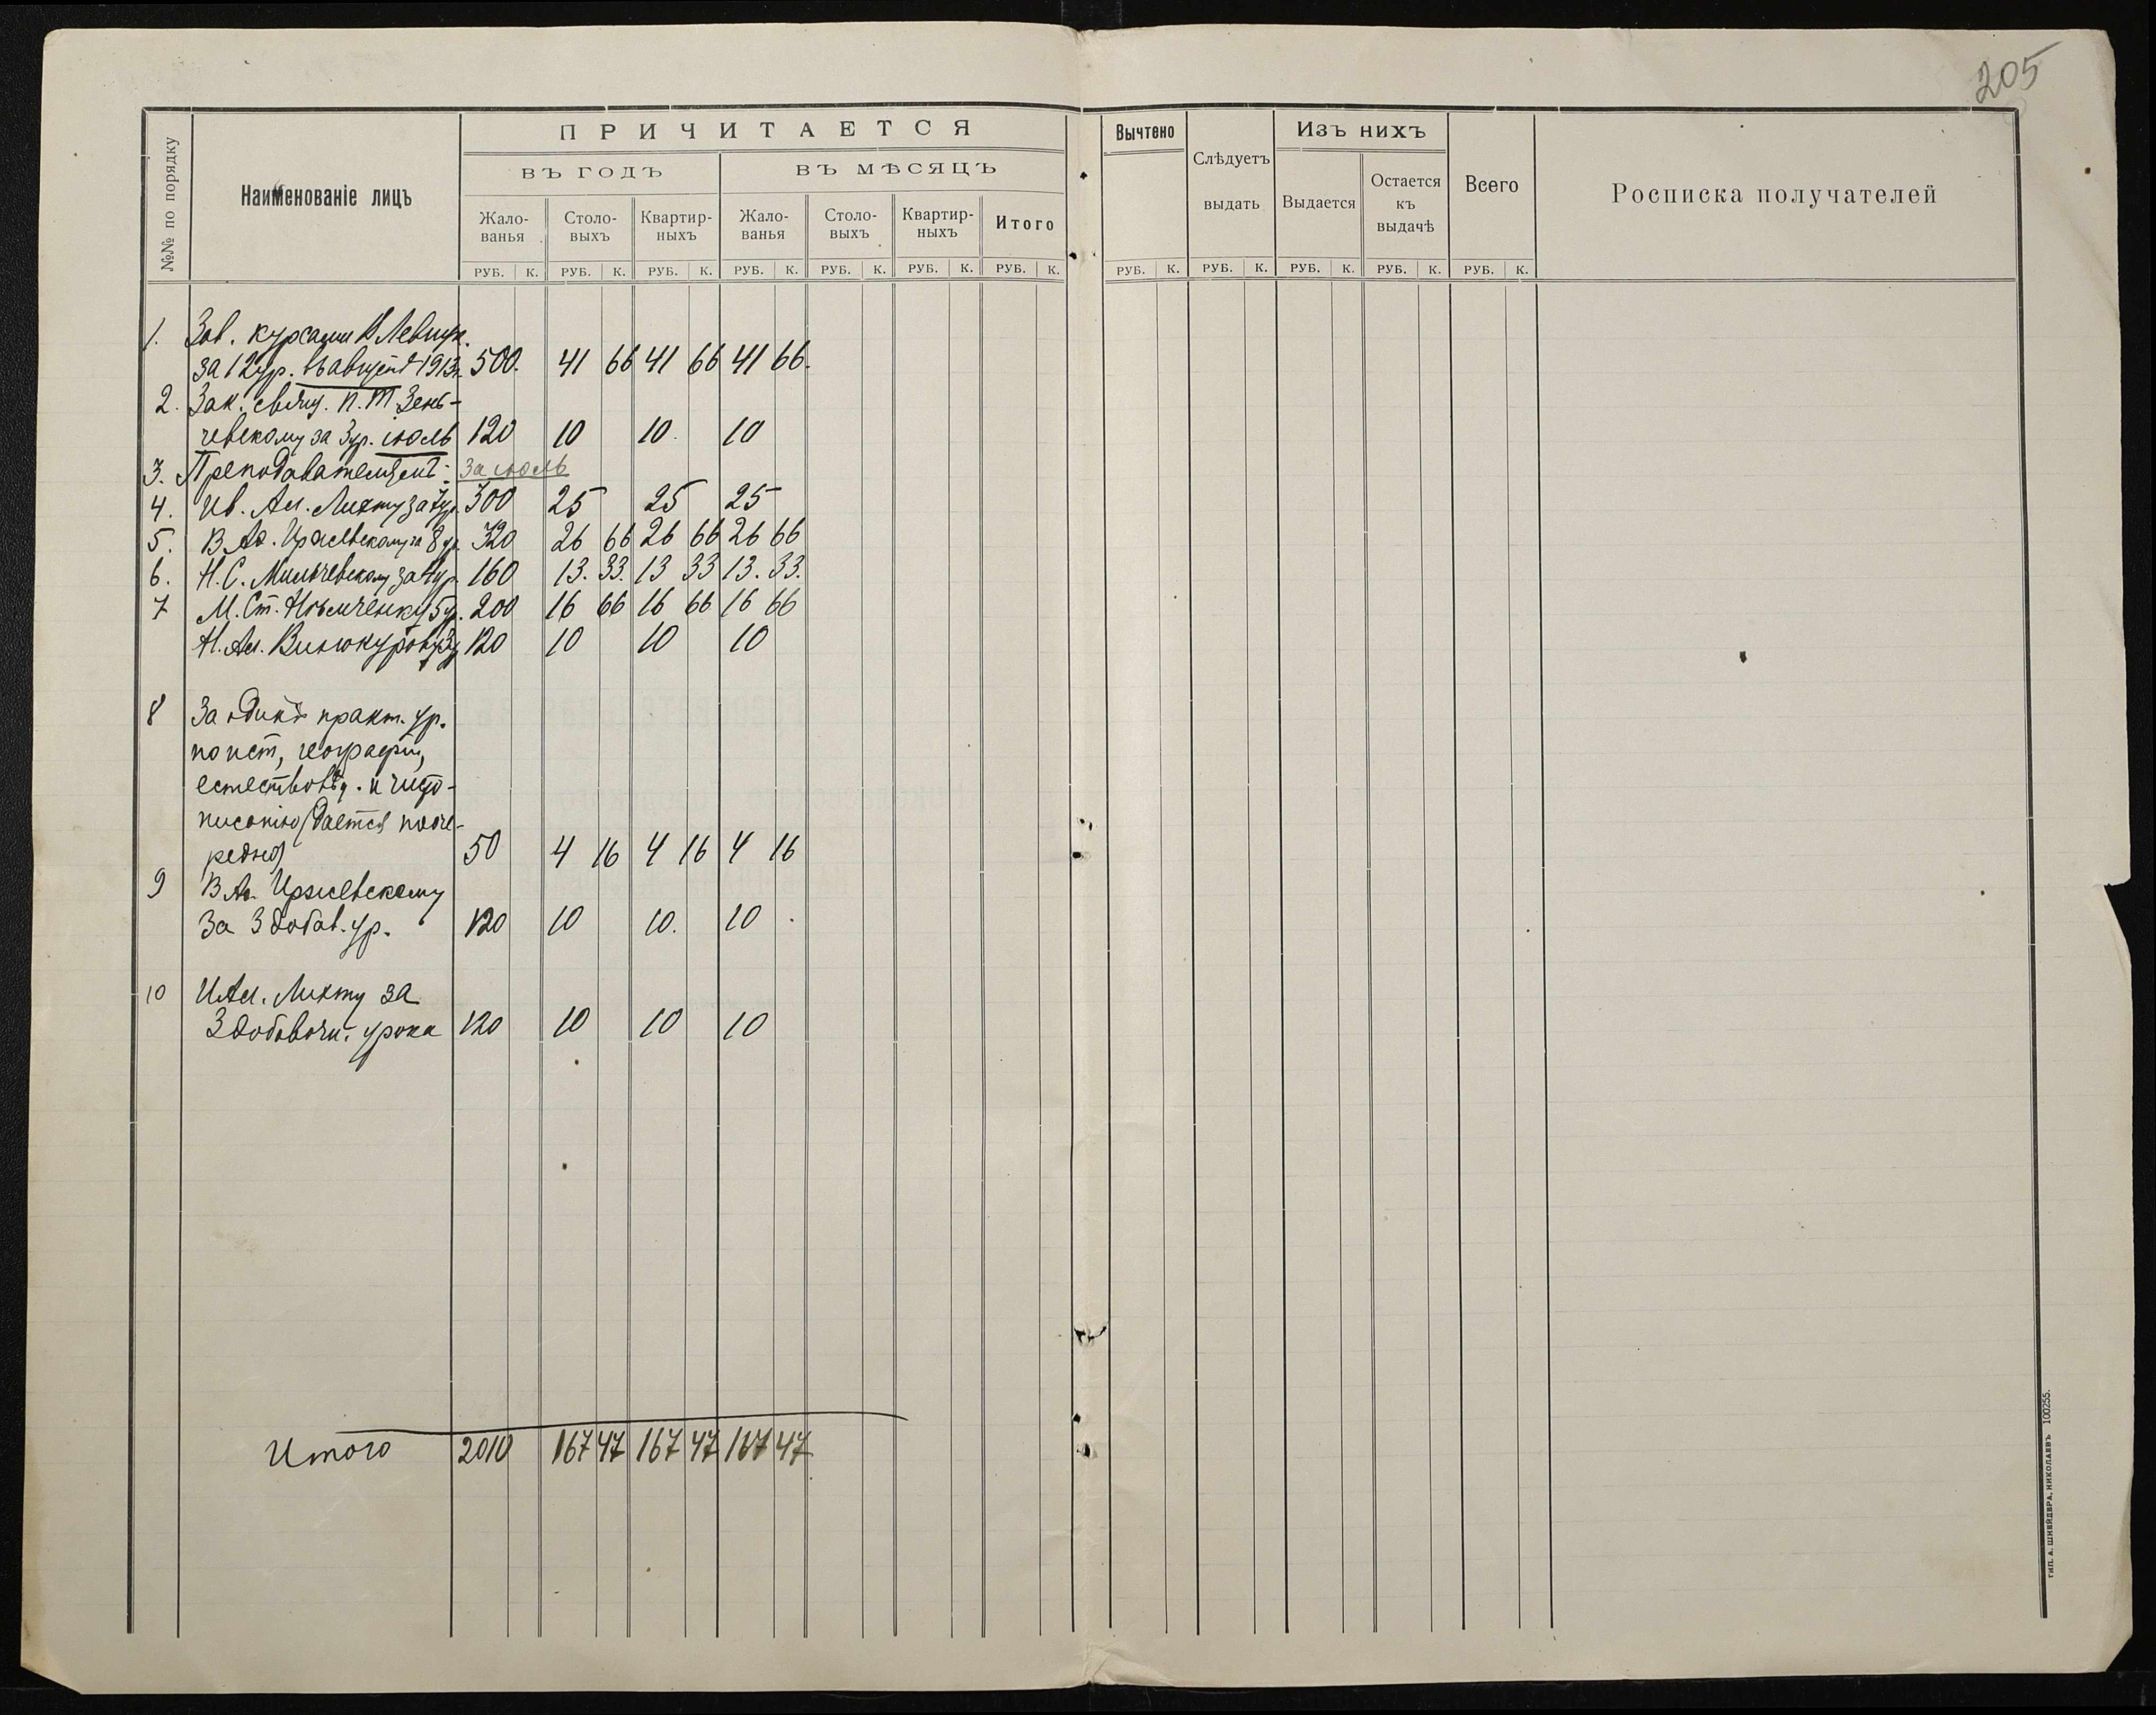 205
№№ по порядку
Наименованіе лицъ
ПРИЧИТАЕТСЯ
ВЪ ГОДЪ
ВЪ МѢСЯЦЪ
Жало-
ванья
Столо-
выхъ
Квартир-
ныхъ
Жало-
ванья
Столо-
выхъ
Квартир-
ныхъ
Итого
Вычтено
Слѣдуетъ
выдать
Изъ нихъ
Выдается
Остается
къ
выдачѣ
Всего
Росписка получателей
РУБ. К. РУБ. К. РУБ. К. РУБ. К. РУБ. К. РУБ. К. РУБ. К. РУБ. К. РУБ. К. РУБ. К. РУБ. К. РУБ. К.
1. Зав. курсами
за 12 ур. въ августѣ 1913 г. 500. 41 66 41 66 41 66.
2. Зак. свящ. П. Т. Зень-
чевскому за 3 ур. іюль 120 10 10. 10
3. Преподавателямъ: за іюль
4. Ив. Ал. Лихту за 7 ур. 300 25 25 25
5. за 8 ур. 320 26 66 26 66 26 66
6. Н. С. Мильчевскому за 4 ур. 160 13. 33. 13 33 13. 33.
7 М. Ст. Нѣмченку 5 ур. 200 16 66 16 66 16 66
Н. Ал. Винокурову 3 у 120 10 10 10
8 За одинъ практ. ур.
по ист, географіи,
естествовѣд. и чисто-
писанію (дается пооче-
редно) 50 4 16 4 16 4 16
9
За 3 добав. ур. 120 10 10. 10
10 И Ал. Лихту за
3 добавочн. урока 120 10 10 10
Итого 2010 167 47 167 47 167 47
ТИП. А. ШНЕЙДЕРА, НИКОЛАЕВЪ 100255.